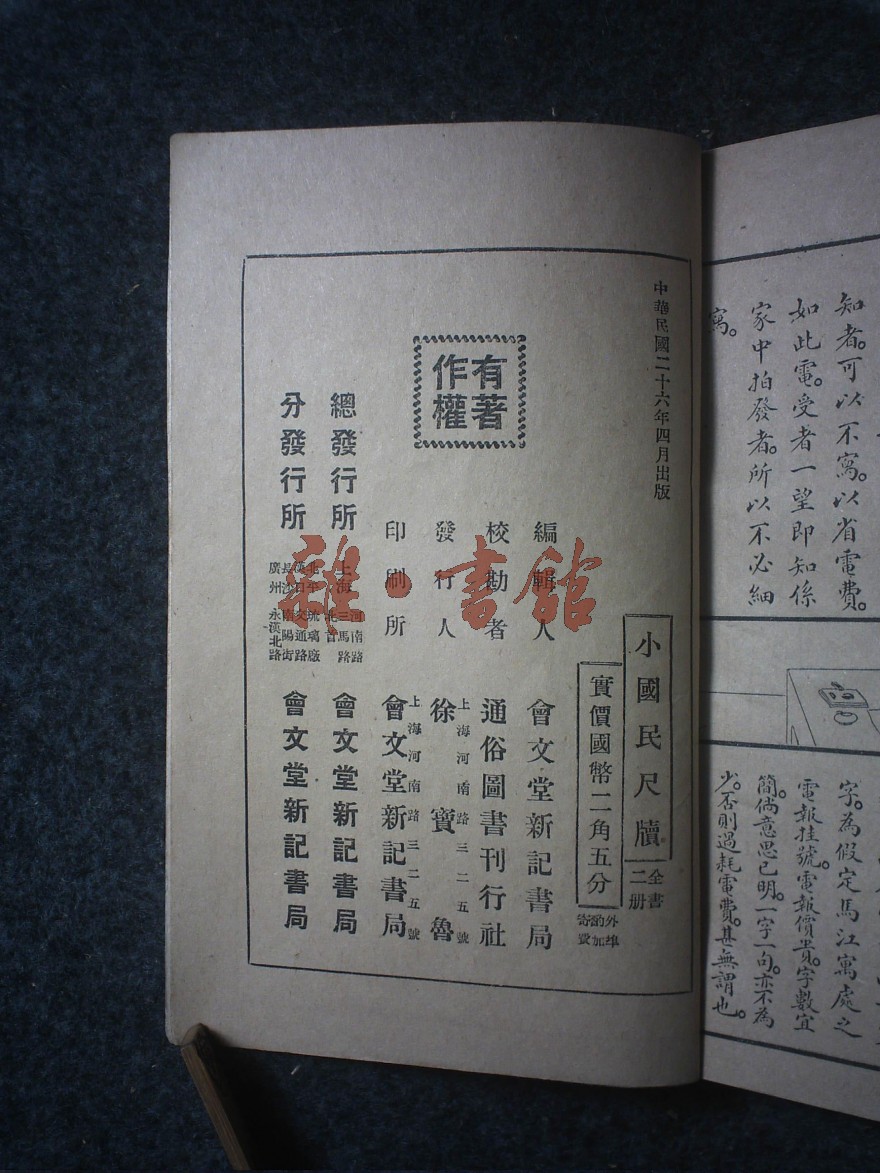 知者。可以不寫。以省電費。
如此電。受者一望即知係
家中拍發者。所以不必細
寫。
字。為假定馬江寓處之
電報挂號。電報價貴。字數宜
簡。倘意思已明。一字一句。亦不為
少。否則過耗電費。甚無謂也。
中華民國二十六年四月出版
小國民尺牘
全書
二册
實價國幣二角五分
外埠
酌加
寄費
編輯人 會文堂新記書局
校勘者 通俗圖書刊行社
發行人 上海河南路三二五號 徐寶魯
印刷所 上海河南路三二五號 會文堂新記書局
有著
作權
總發行所 上海 河南路 三馬路 北首 會文堂新記書局
分發行所 北平 琉璃廠 漢口 交通路 長沙 南陽街 廣州 永漢北路 會文堂新記書局
雜·書館